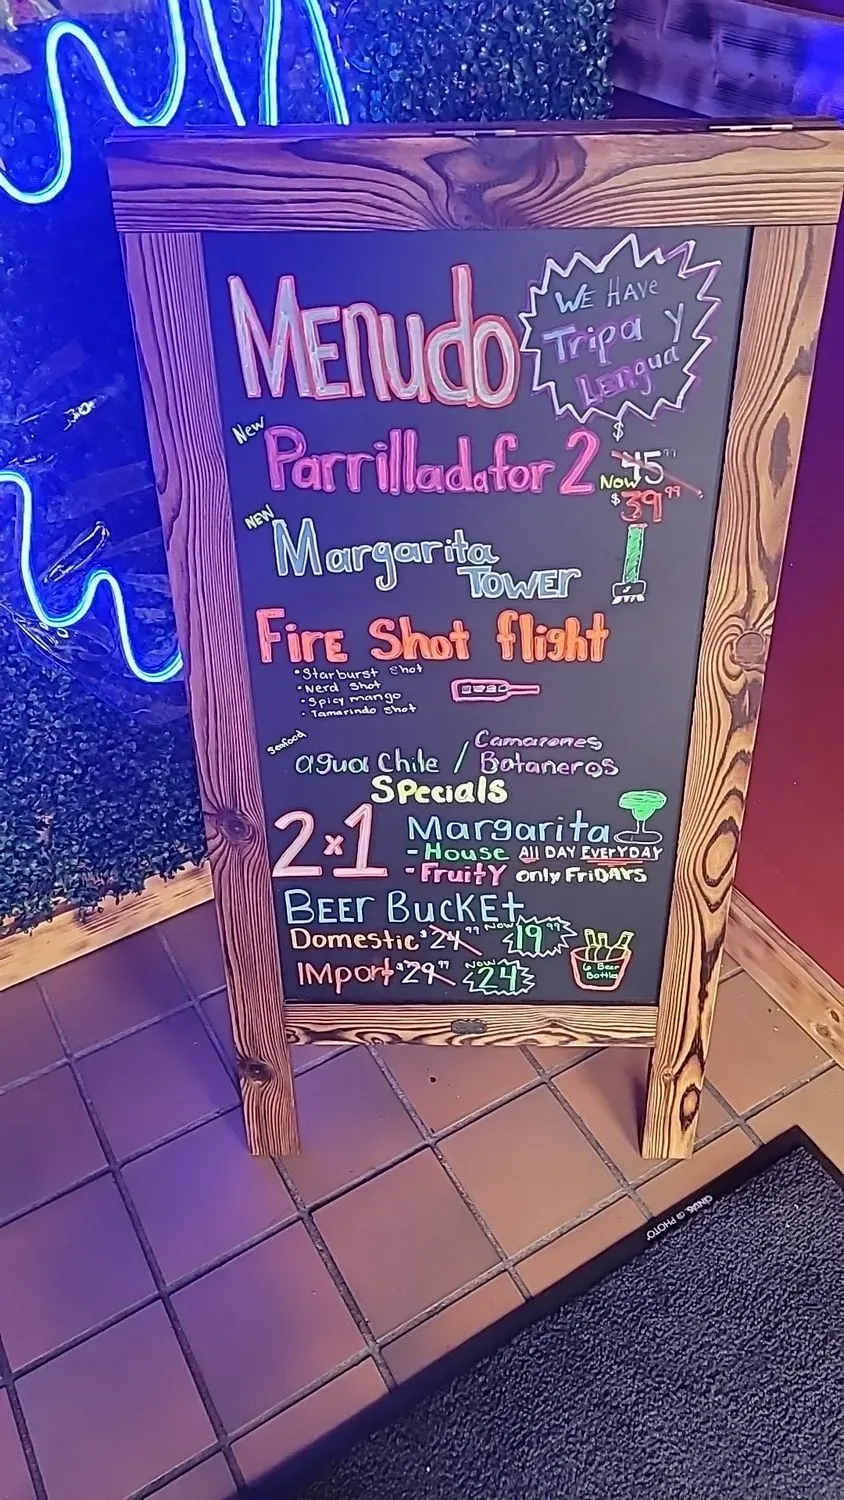 Menudo
WE HAVE
Tripa y
Lengua
New
Parrillada for 2
$45.99
Now
$39.99
NEW
Margarita
TOWER
Fire Shot flight
• Starburst Shot
• Nerd Shot
• Spicy mango
• Tamarindo Shot
Seafood
agua Chile / Camarones
Botaneros
Specials
2x1
Margarita
- House All DAY EVERYDAY
- Fruity only FRIDAYS
BEER BUCKEt
Domestic $24.99 NOW 19.99
IMPort $29.99 NOW $24
6 Beer
Bottles
CINTAS @ PHOTO